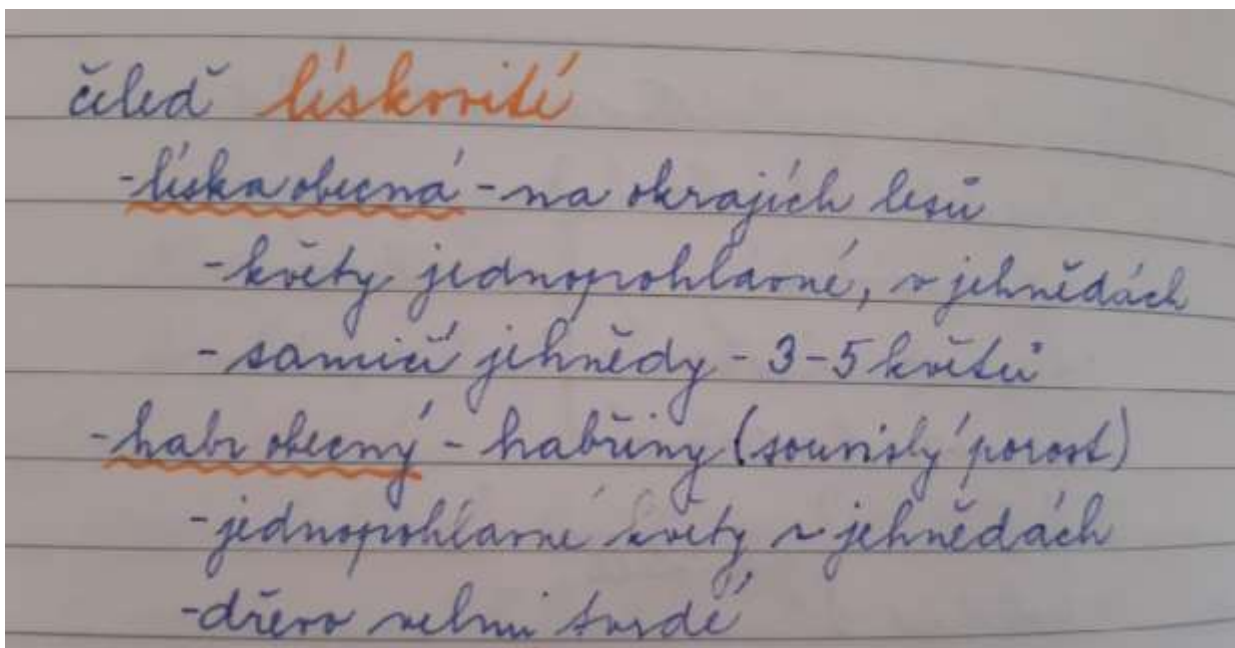 čeleď lískovité
-líska obecná - na okrajích lesů
-květy jednopohlavné, v jehnědách
- samičí jehnědy - 3-5 květů
-habr obecný - habřiny (souvislý porost)
-jednopohlavné květy v jehnědách
-dřevo velmi tvrdé